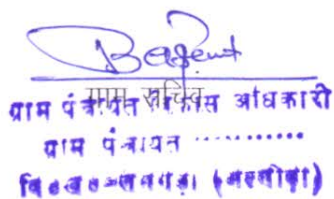 ग्राम सचिव
ग्राम पंचायत विकास अधिकारी
ग्राम पंचायत ..........
वि०ख०-लमगड़ा (अल्मोड़ा)